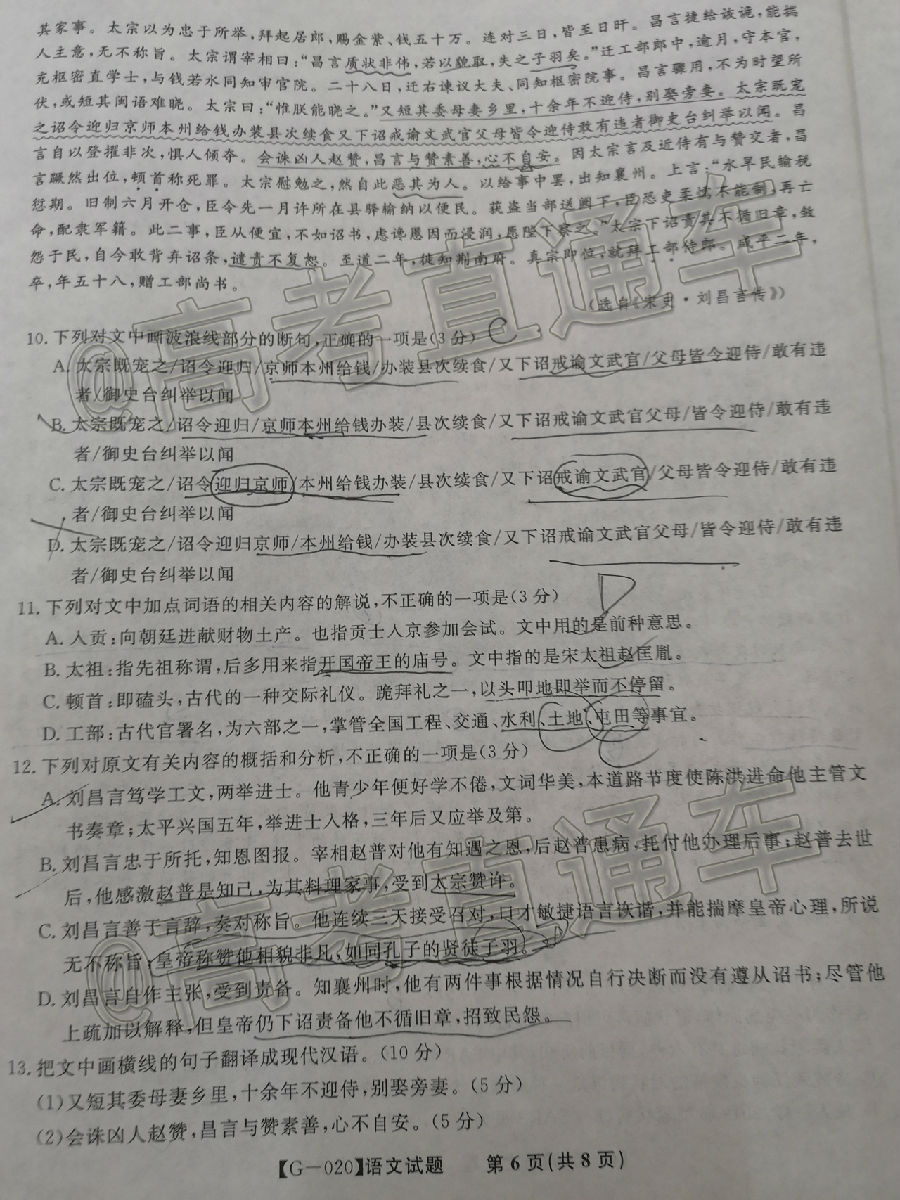 其家事。太宗以为忠于所举,拜起居郎、赐金紫、钱五十万。连对三日,皆至日旰。昌言捷给诙诡,能揣
人主意,无不称旨。太宗谓宰相曰:“昌言质状非伟,若以貌取,失之子羽矣。”迁工部郎中,逾月,守本官,
充枢密直学士,与钱若水同知审官院。二十八日,迁右谏议大夫、同知枢密院事。昌言骤用,不为时望所
伏,或短其闽语难晓。太宗曰:“惟朕能晓之。”又短其委母妻乡里,十余年不迎侍,别娶旁妻。太宗既宠
之诏令迎归京师本州给钱办装县次续食又下诏戒谕文武官父母皆令迎侍敢有违者御史台纠举以闻。昌
言自以登擢非次,惧人倾夺。会诛凶人赵赞,昌言与赞素善,心不自安。因太宗言及近侍有与赞交者,昌
言蹶然出位,顿首称死罪。太宗慰勉之,然自此恶其为人。以给事中罢,出知襄州。上言:“水旱民输税
愆期。旧制六月开仓,臣令先一月许所在县驿输纳以便民。获盗当部送阙下,臣恐吏柔懦不能制,再亡
命,配隶军籍。此二事,臣从便宜,不如诏书,虑谗慝因而浸润,愿陛下察之。”太宗下诏责其不循旧章,敛
怨于民,自今敢背弃诏条,谴责不复恕。至道二年,徙知荆南府。真宗即位,就拜工部侍郎。咸平二年,
卒,年五十八,赠工部尚书。
(选自《宋史·刘昌言传》)
10. 下列对文中画波浪线部分的断句,正确的一项是(3 分) C
A. 太宗既宠之/诏令迎归/京师本州给钱/办装县次续食/又下诏戒谕文武官/父母皆令迎侍/敢有违
者/御史台纠举以闻
B. 太宗既宠之/诏令迎归/京师本州给钱办装/县次续食/又下诏戒谕文武官父母/皆令迎侍/敢有违
者/御史台纠举以闻
C. 太宗既宠之/诏令迎归京师/本州给钱办装/县次续食/又下诏戒谕文武官/父母皆令迎侍/敢有违
者/御史台纠举以闻
D. 太宗既宠之/诏令迎归京师/本州给钱/办装县次续食/又下诏戒谕文武官父母/皆令迎侍/敢有违
者/御史台纠举以闻
11. 下列对文中加点词语的相关内容的解说,不正确的一项是(3 分) D
A. 入贡:向朝廷进献财物土产。也指贡士入京参加会试。文中用的是前种意思。
B. 太祖:指先祖称谓,后多用来指开国帝王的庙号。文中指的是宋太祖赵匡胤。
C. 顿首:即磕头,古代的一种交际礼仪。跪拜礼之一,以头叩地即举而不停留。
D. 工部:古代官署名,为六部之一,掌管全国工程、交通、水利、土地、屯田等事宜。
12. 下列对原文有关内容的概括和分析,不正确的一项是(3 分)
A. 刘昌言笃学工文,两举进士。他青少年便好学不倦,文词华美,本道路节度使陈洪进命他主管文
书奏章;太平兴国五年,举进士入格,三年后又应举及第。
B. 刘昌言忠于所托,知恩图报。宰相赵普对他有知遇之恩,后赵普患病,托付他办理后事;赵普去世
后,他感激赵普是知己,为其料理家事,受到太宗赞许。
C. 刘昌言善于言辞,奏对称旨。他连续三天接受召对,口才敏捷语言诙谐,并能揣摩皇帝心理,所说
无不称旨;皇帝称赞他相貌非凡,如同孔子的贤徒子羽。
D. 刘昌言自作主张,受到责备。知襄州时,他有两件事根据情况自行决断而没有遵从诏书;尽管他
上疏加以解释,但皇帝仍下诏责备他不循旧章,招致民怨。
13. 把文中画横线的句子翻译成现代汉语。(10 分)
(1)又短其委母妻乡里,十余年不迎侍,别娶旁妻。(5 分)
(2)会诛凶人赵赞,昌言与赞素善,心不自安。(5 分)
【G-020】语文试题 第 6 页(共 8 页)
@高考直通车
@高考直通车